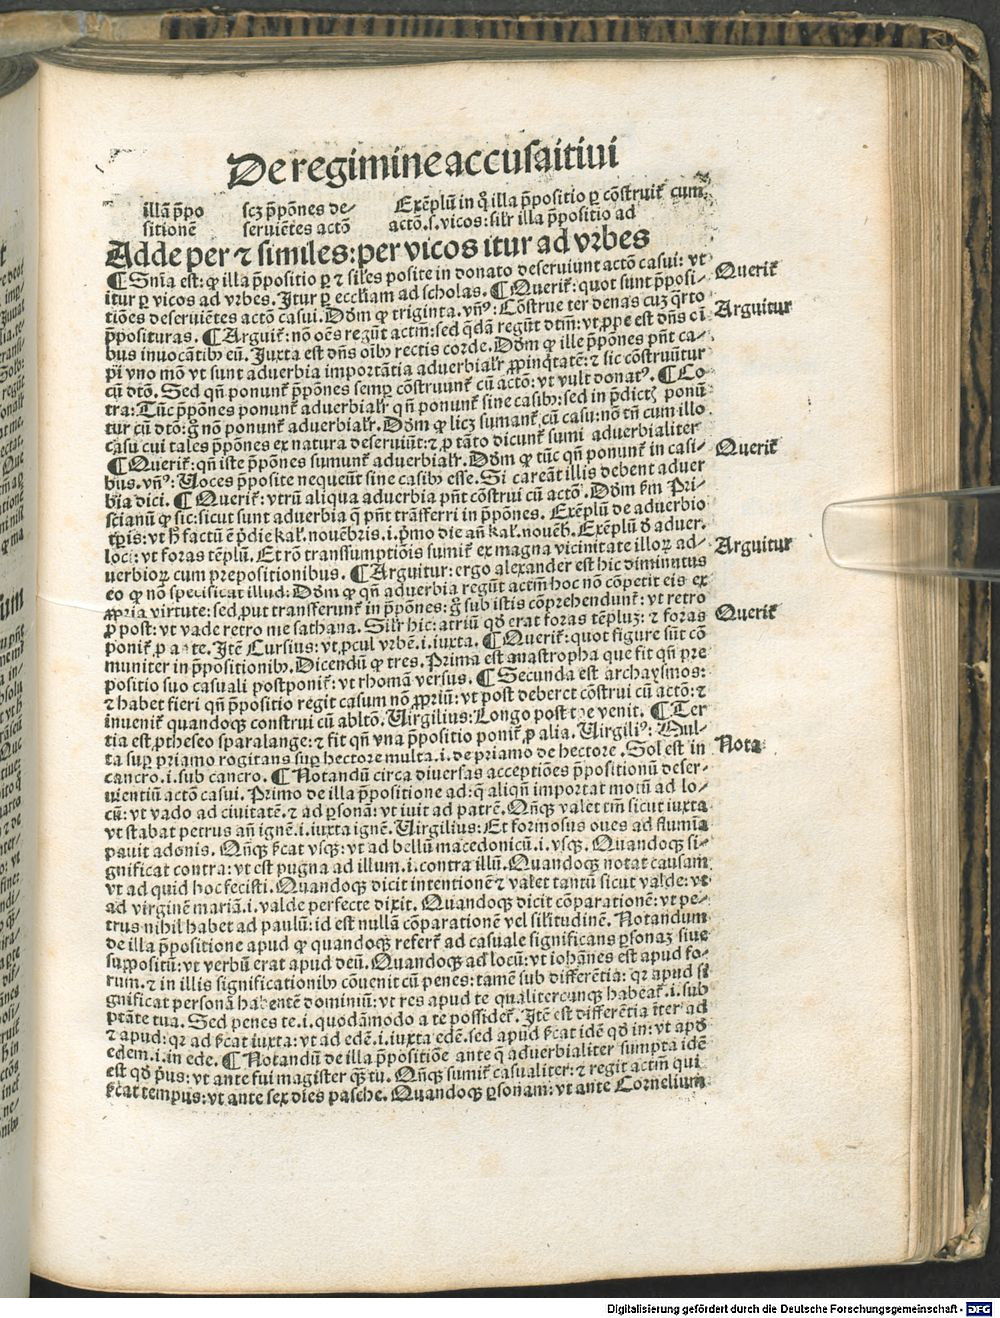 De regimine accusaitiui
illā p̄po scz p̄pōnes de- Exēplū in q̊ illa p̄positio ꝑ cōstruiť cum
sitionē seruiētes actō actō.s.vicos:silr illa p̄positio ad
Adde per ⁊ similes:per vicos itur ad vrbes
¶ Snīa est:ꝙ illa p̄positio ꝑ ⁊ siles posite in donato deseruiunt actō casui: vt
itur ꝑ vicos ad vrbes. Itur ꝑ eccliam ad scholas. ¶ Queriť: quot sunt p̄posi-
Queriť
tiōes deseruiētes actō casui. Dōm ꝙ triginta. vn̄ꝰ: Cōstrue ter denas cuz q̄rto
p̄posituras. ¶ Arguiť: nō oēs regūt actm̄: sed q̄dā regūt dtm̄: vt, ꝓpe est dn̄s oī
Arguitur
bus inuocātibꝫ eū. Juxta est dn̄s oībꝫ rectis corde. Dōm ꝙ ille p̄pōnes pn̄t ca-
pi vno mō vt sunt aduerbia importātia aduerbialr̄ ꝓpinq̄tatē: ⁊ sic cōstruūtur
cū dtō. Sed qn̄ ponunť p̄pōnes semꝑ cōstruunť cū actō: vt vult donatꝰ. ¶ Cō
tra: Tūc p̄pōnes ponunť aduerbialr̄ qn̄ ponunť sine casibꝫ: sed in p̄dictꝭ ponū
tur cū dtō: g̊ nō ponunť aduerbialr̄. Dōm ꝙ licꝫ sumanť cū casu: nō tn̄ cum illo
casu cui tales p̄pōnes ex natura deseruiūt: ⁊ ꝓ tāto dicunť sumi aduerbialiter
¶ Queriť: qn̄ iste p̄pōnes sumunť aduerbialr̄. Dōm ꝙ tūc qn̄ ponunť in casi-
Queriť
bus. vn̄ꝰ: Uoces p̄posite nequeūt sine casibꝫ esse. Si careāt illis debent aduer
bia dici. ¶ Queriť: vtrū aliqua aduerbia pn̄t cōstrui cū actō. Dōm ẜm Pri-
scianū ꝙ sic: sicut sunt aduerbia q̄ pn̄t trāsferri in p̄pōnes. Exēplū de aduerbio
tp̄ris: vt h̄ factū ē p̄die kal. nouēbris. i. p̄mo die an̄ kal. nouēb. Exēplū ð aduer.
loci: vt foras tēplū. Et rō transsumptiōis sumiť ex magna vicinitate illoꝝ ad-
uerbioꝝ cum prepositionibus. ¶ Arguitur: ergo alexander est hic diminutus
Arguitur
eo ꝙ nō specificat illud: Dōm ꝙ qn̄ aduerbia regūt actm̄ hoc nō cōpetit eis ex
ꝓpria virtute: sed, put transferunť in p̄pōnes: g̊ sub istis cōprehendunť: vt retro
ꝓ post: vt vade retro me sathana. Silr̄ hic: atriū qð erat foras tēpluz: ⁊ foras
poniť ꝓ a te. Itē Cursius: vt, pcul vrbē. i. iuxta. ¶ Queriť: quot figure sūt cō
Queriť
muniter in p̄positionibꝫ. Dicendū ꝙ tres. Prima est anastropha que fit qn̄ pre
positio suo casuali postponiť: vt rhomām versus. ¶ Secunda est archaysmos:
⁊ habet fieri qn̄ p̄positio regit casum nō ꝓpriū: vt post deberet cōstrui cū actō: ⁊
inueniť quandoqꝫ construi cū abltō. Uirgilius: Longo post tpe venit. ¶ Ter
tia est, ptheseo sparalange: ⁊ fit qn̄ vna p̄positio poniť ꝓ alia. Uirgiliꝰ: Mul-
ta suꝑ priamo rogitans suꝑ hectore multa. i. de priamo de hectore. Sol est in
Nota
cancro. i. sub cancro. ¶ Notandū circa diuersas acceptiōes p̄positionū deser-
uientiū actō casui. Primo de illa p̄positione ad: q̄ aliqn̄ importat motū ad lo-
cū: vt vado ad ciuitatē: ⁊ ad ꝑsonā: vt iuit ad patrē. Qn̄qꝫ valet tm̄ sicut iuxta
vt stabat petrus an̄ ignē. i. iuxta ignē. Uirgilius: Et formosus oues ad flumīa
pauit adonis. Qn̄qꝫ ẜcat vsqꝫ: vt ad bellū macedonicū. i. vsqꝫ. Quandoqꝫ si-
gnificat contra: vt est pugna ad illum. i. contra illū. Quandoqꝫ notat causam
vt ad quid hoc fecisti. Quandoqꝫ dicit intentionē ⁊ valet tantū sicut valde: vt
ad virginē mariā. i. valde perfecte dixit. Quandoqꝫ dicit cōparationē: vt pe-
trus nihil habet ad paulū: id est nullā cōparationē vel silitudinē. Notandum
de illa p̄positione apud ꝙ quandoqꝫ referť ad casuale significans ꝑsonaz siue
suppositū: vt verbū erat apud deū. Quandoqꝫ ad locū: vt iohānes est apud fo-
rum. ⁊ in illis significationibꝫ cōuenit cū penes: tamē sub differētia: qꝛ apud si
gnificat personā habentē dominiū: vt res apud te qualitercunqꝫ habeať. i. sub
ptāte tua. Sed penes te. i. quodāmodo a te possideť. Itē est differētia īter ad
⁊ apud: qꝛ ad ẜcat iuxta: vt ad edē. i. iuxta edē. sed apud ẜcat idē qð in: vt apð
edem. i. in ede. ¶ Notandū de illa p̄positiōe ante q̄ aduerbialiter sumpta idē
est qð p̄us: vt ante fui magister qꝫ tu. Qn̄qꝫ sumiť casualiter: ⁊ regit actm̄ qui
ẜcat tempus: vt ante sex dies pasche. Quandoqꝫ ꝑsonam: vt ante Cornelium
Digitalisierung gefördert durch die Deutsche Forschungsgemeinschaft - DFG